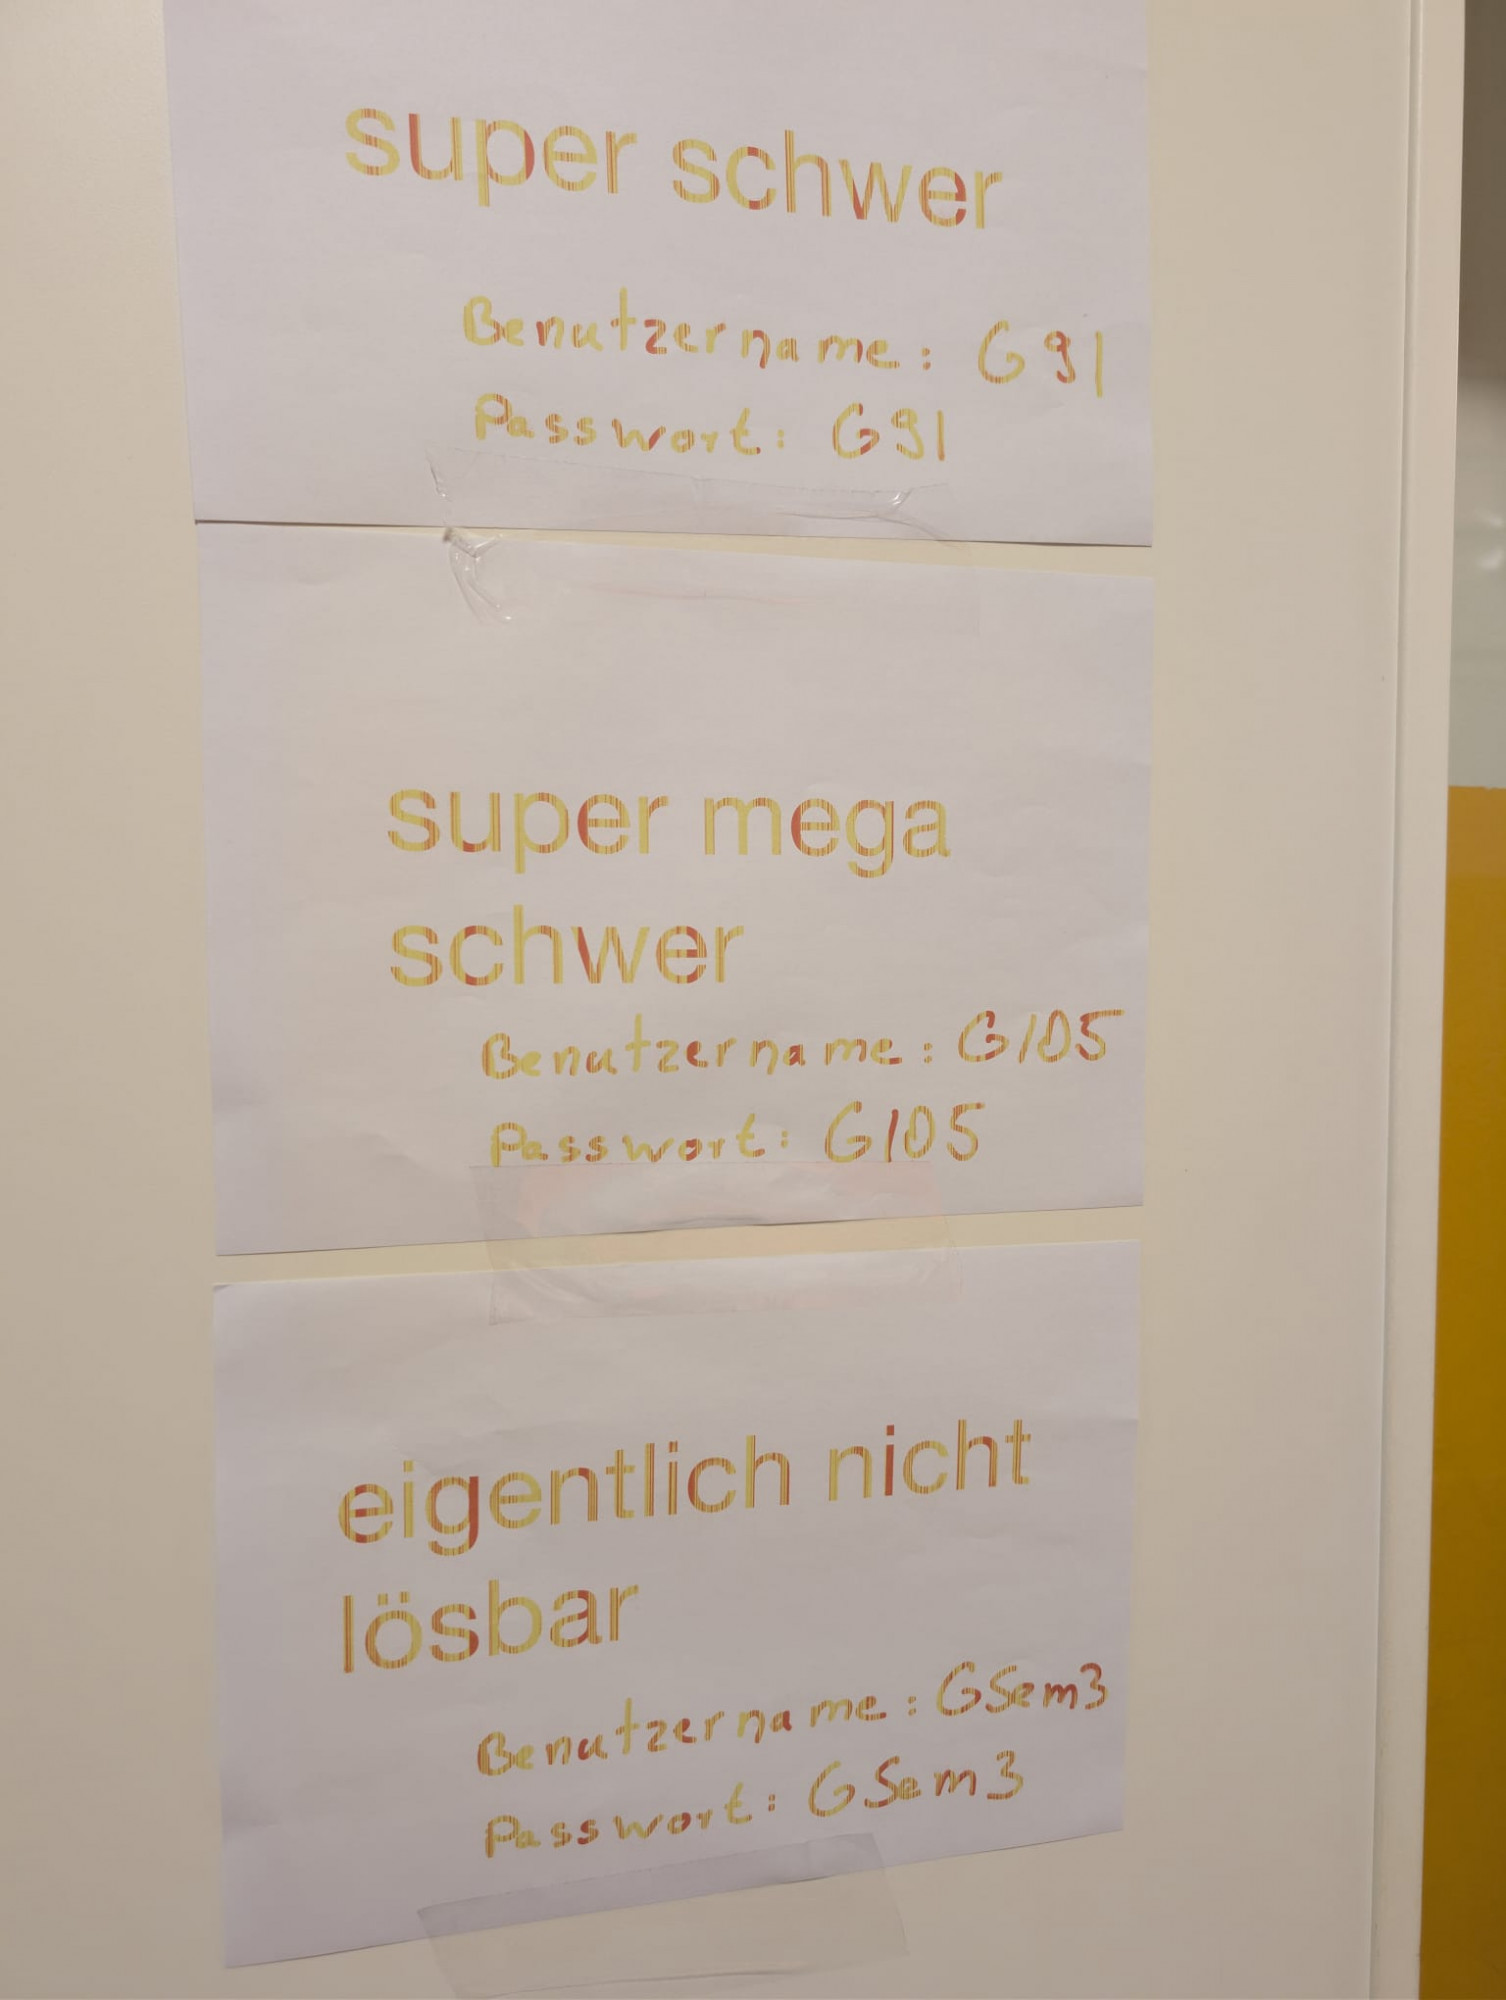 super schwer
Benutzername: G91
Passwort: G91
super mega
schwer
Benutzername: G105
Passwort: G105
eigentlich nicht
lösbar
Benutzername: GSem3
Passwort: GSem3